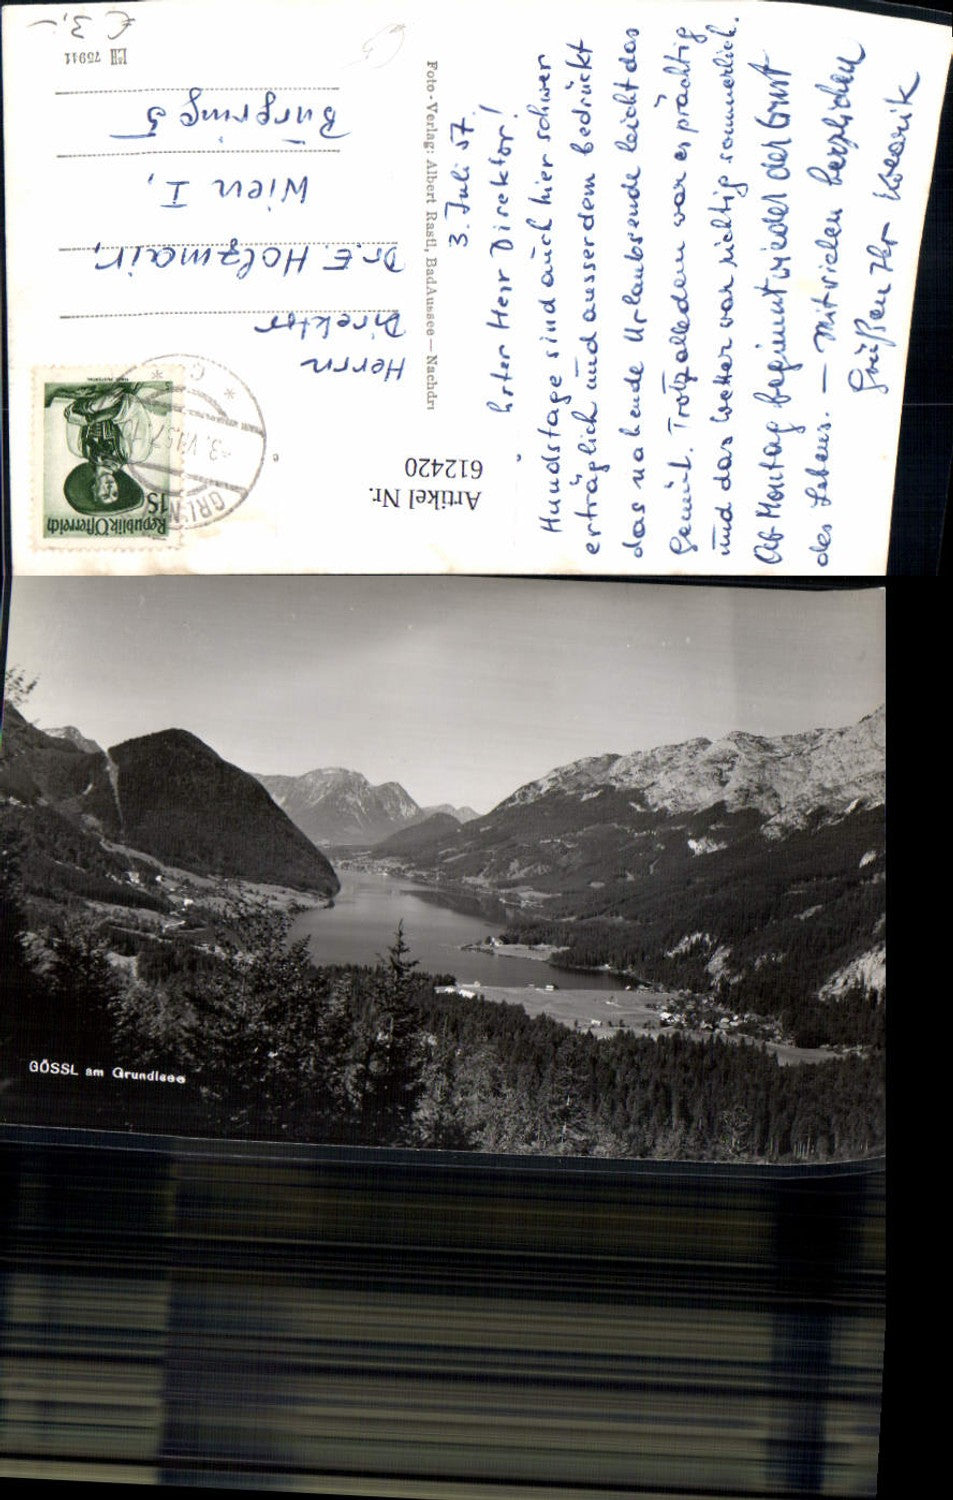 3. Juli 57.
Hunds­tage sind auch hier schwer
erträglich und ausserdem bedrückt
das nahende Urlaubsende leicht das
Gemüt. Trotzalledem war es prächtig
und das Wetter war richtig sommerlich.
Ab Montag beginnt wieder der Ernst
des Lebens. — Mit vielen herzlichen
Grüßen Ihr
Foto-Verlag: Albert Rastl, Bad Aussee — Nachdr
Artikel Nr.
612420
Republik Österreich
1S
Herrn
Direktor
Dr. E. Holzmair,
Wien I,
Burgring 5
75941
€ 3,-
GÖSSL am Grundlsee